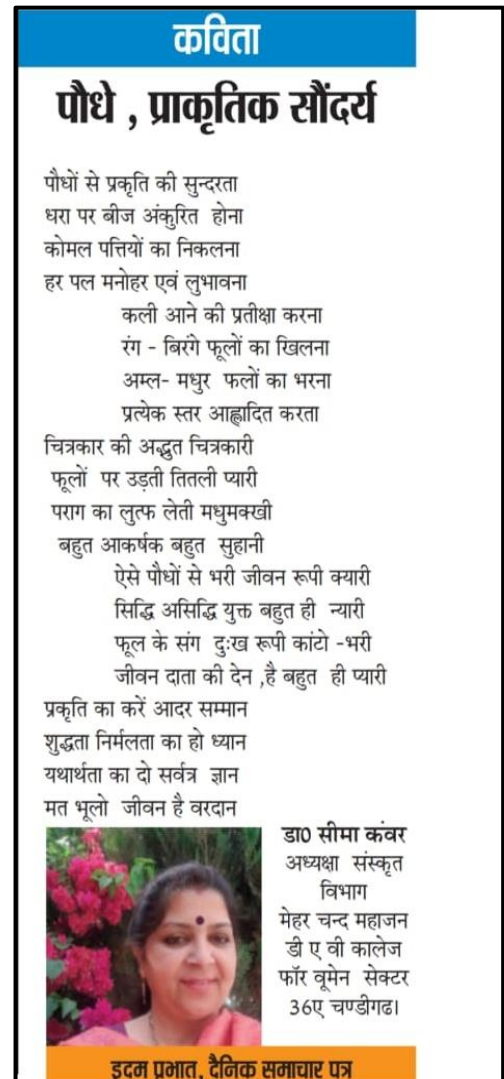 कविता
पौधे , प्राकृतिक सौंदर्य
पौधों से प्रकृति की सुन्दरता
धरा पर बीज अंकुरित होना
कोमल पत्तियों का निकलना
हर पल मनोहर एवं लुभावना
कली आने की प्रतीक्षा करना
रंग - बिरंगे फूलों का खिलना
अम्ल- मधुर फलों का भरना
प्रत्येक स्तर आह्लादित करता
चित्रकार की अद्भुत चित्रकारी
फूलों पर उड़ती तितली प्यारी
पराग का लुत्फ लेती मधुमक्खी
बहुत आकर्षक बहुत सुहानी
ऐसे पौधों से भरी जीवन रूपी क्यारी
सिद्धि असिद्धि युक्त बहुत ही न्यारी
फूल के संग दुःख रूपी कांटो -भरी
जीवन दाता की देन ,है बहुत ही प्यारी
प्रकृति का करें आदर सम्मान
शुद्धता निर्मलता का हो ध्यान
यथार्थता का दो सर्वत्र ज्ञान
मत भूलो जीवन है वरदान
डा0 सीमा कंवर
अध्यक्षा संस्कृत
विभाग
मेहर चन्द महाजन
डी ए वी कालेज
फॉर वूमेन सेक्टर
36ए चण्डीगढ।
इदम प्रभात, दैनिक समाचार पत्र